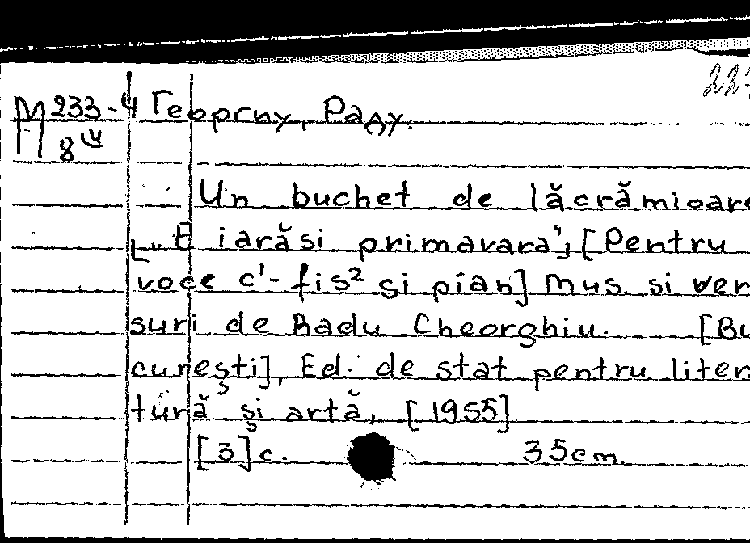 22
М 233-4 Георгиу, Раду.
8
Un buchet de lăcrămioare
[„E iarăsi primavara"; [Pentru
voce c¹-fis² şi pian] Mus si ver
suri de Radu Cheorghiu. [Bu
cureşti], Ed. de stat pentru liter
tură şi artă, [1955]
[3]c. 35cm.